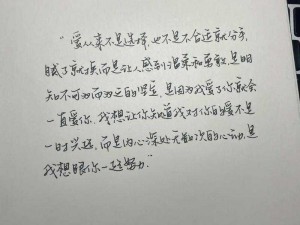 “爱从来不是选择，也不是不合适就分手，
腻了就换而是让人感到温柔和勇敢，是明
知不可为而为之的坚定，是因为我爱了你就会
一直爱你，我想让你知道我对你的爱不是
一时兴起，而是内心深处无数次的心动，是
我想跟你一起努力。”